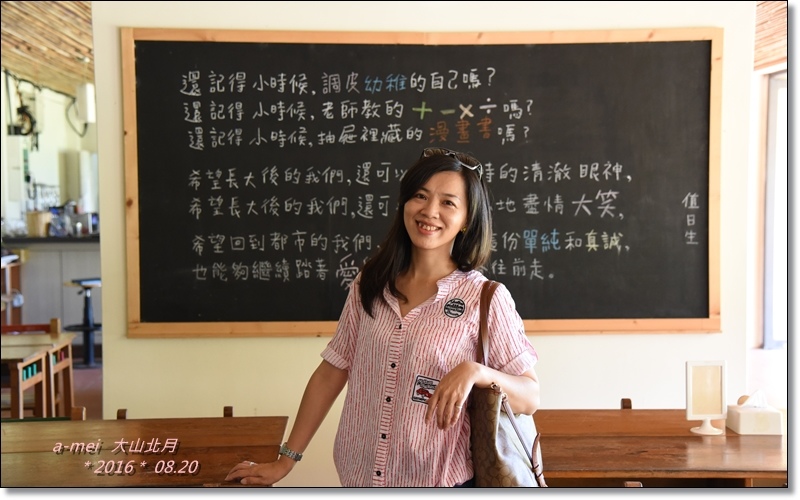 還記得小時候，調皮幼稚的自己嗎？
還記得小時候，老師教的＋－×÷嗎？
還記得小時候，抽屜裡藏的漫畫書嗎？
希望長大後的我們，還可以 時的清澈眼神，
希望長大後的我們，還可 地盡情大笑，
希望回到都市的我們 份單純和真誠，
也能夠繼續踏著愛 往前走。
值日生
a-mei 大山北月
*2016* 08.20